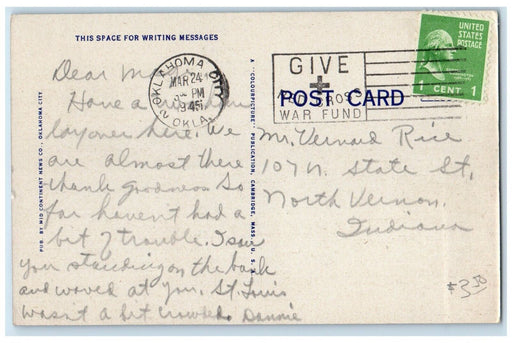 THIS SPACE FOR WRITING MESSAGES
UNITED STATES POSTAGE
1 CENT 1
OKLAHOMA CITY
MAR 24
PM
1945
OKLA.
GIVE
+
RED CROSS
WAR FUND
POST CARD
PUB. BY MID CONTINENT NEWS CO., OKLAHOMA CITY
A "COLORPICTURE" PUBLICATION, CAMBRIDGE, MASS., U. S. A.
Dear
Have a
layover here. We
are almost there
thank goodness. So
far haven't had a
bit of trouble. I saw
you standing on the bank
and waved at you. St. Louis
wasn't a bit crowded. Dannie
Mr. Vernard Rice
107 N. State St,
North Vernon,
Indiana
$3.50